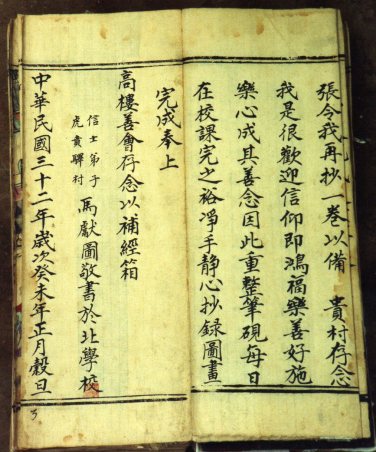 張令我再抄一卷以備 貴村存念
我是很歡迎信仰即鴻福樂善好施
樂心成其善念因此重整筆硯每日
在校課完之裕淨手靜心抄録圖畫
完成奉上
高樓善會存念以補經箱
信士弟子
虎賁驛村
馬獻圖敬書於北學校
中華民國三十二年歲次癸未年正月榖旦
3